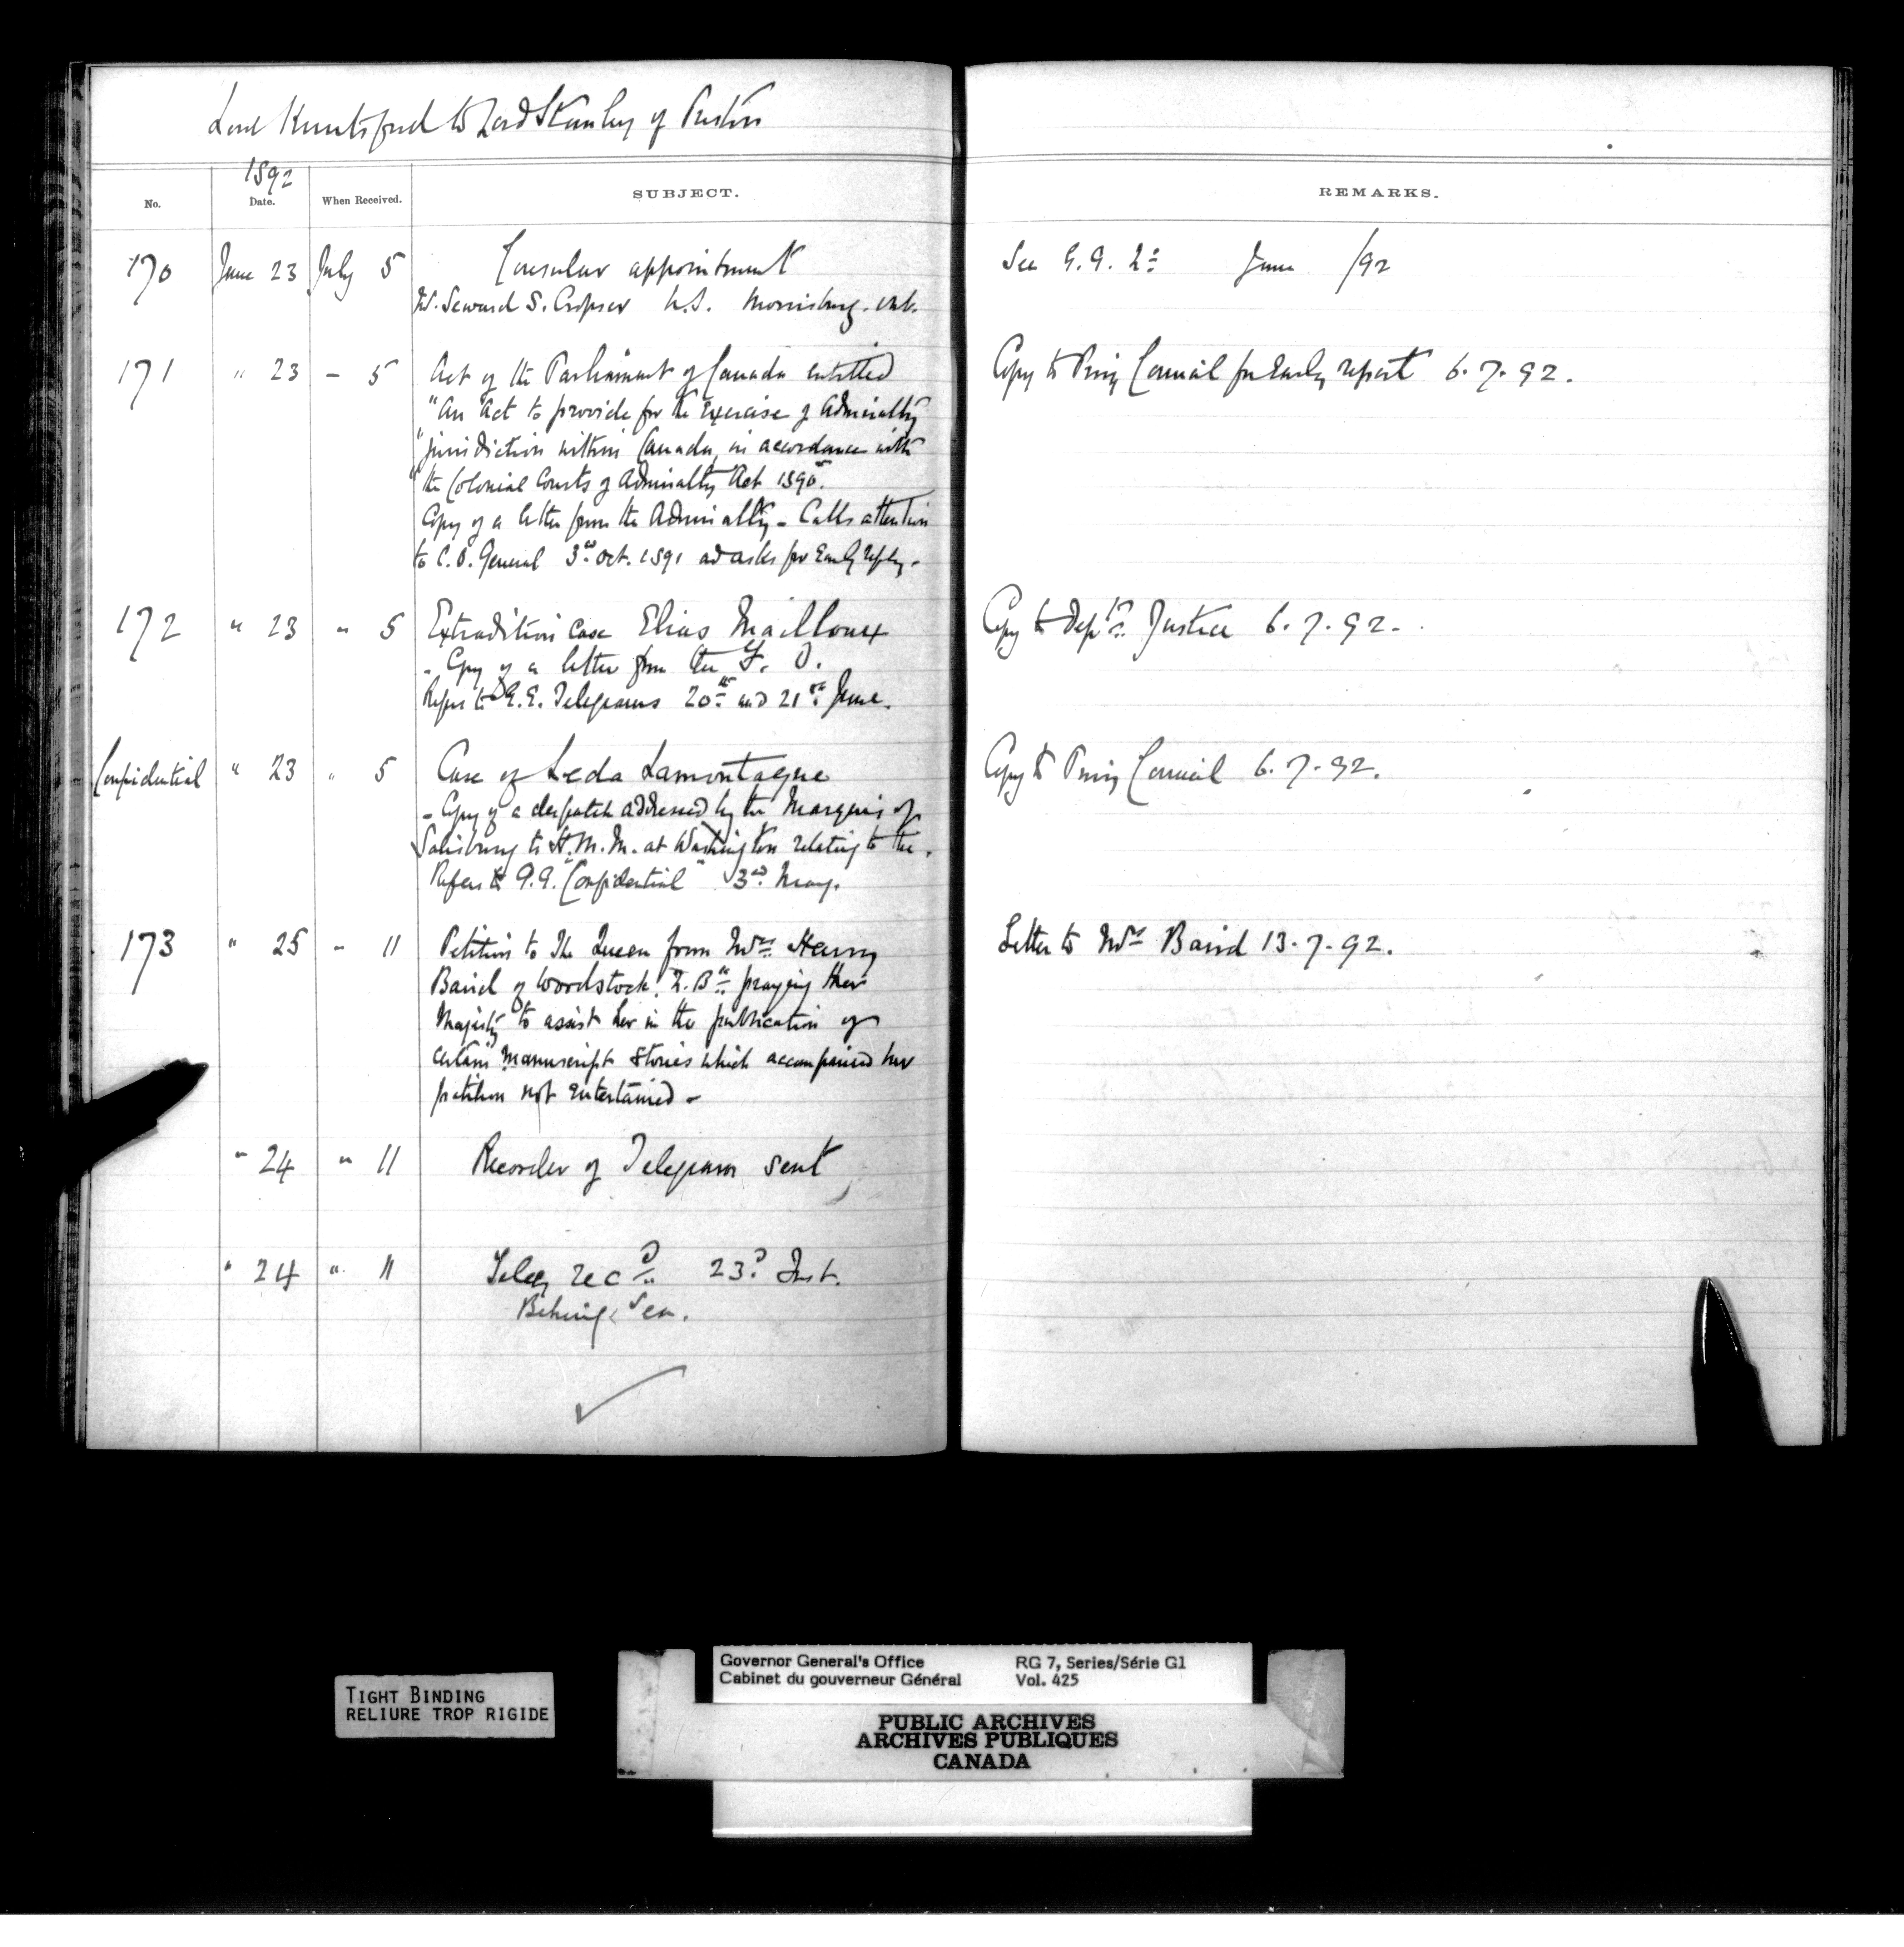 Lord Knutsford to Lord Stanley of Preston
1892
No. Date. When Received. SUBJECT. REMARKS.
170 June 23 July 5 Consular appointment See G.G. June /92
Mr. Seward S. Cropser U.S. Morrisburg. Ont.
171 " 23 - 5 Act of the Parliament of Canada entitled Copy to Privy Council for early report 6.7.92.
"An Act to provide for the Exercise of Admiralty
"jurisdiction within Canada, in accordance with
"the Colonial Courts of Admiralty Act 1890".
Copy of a letter from the Admiralty - Calls attention
to C.O. General 3rd Oct. 1891 and asks for Early reply.
172 " 23 " 5 Extradition Case Elias Mailloux Copy to Dept Justice 6.7.92.
- Copy of a letter from the F.O.
Refers to G.G. Telegrams 20th and 21st June.
Confidential " 23 " 5 Case of Leda Lamontagne Copy to Privy Council 6.7.92.
- Copy of a despatch addressed by the Marquis of
Salisbury to H.M.M. at Washington relating to the.
Refers to G.G. "Confidential" 3rd May.
173 " 25 - 11 Petition to The Queen from Mrs Henry Letter to Mrs Baird 13.7.92.
Baird of Woodstock, N.Bk praying Her
Majesty to assist her in the publication of
certain manuscript stories which accompanied her
petition not entertained -
" 24 " 11 Recorder of Telegram sent
" 24 " 11 Teleg recd 23d Inst.
Behring Sea.
TIGHT BINDING
RELIURE TROP RIGIDE
Governor General's Office RG 7, Series/Série G1
Cabinet du gouverneur Général Vol. 425
PUBLIC ARCHIVES
ARCHIVES PUBLIQUES
CANADA